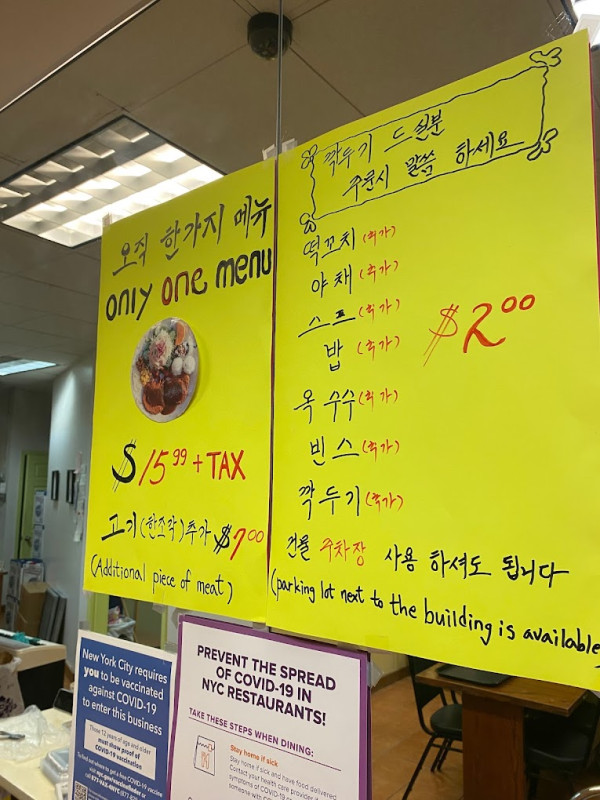 오직 한가지 메뉴
only one menu
$15.99 + TAX
고기(한조각)추가 $7.00
(Additional piece of meat)
깍두기 드실분
주문시 말씀 하세요
떡꼬치 (추가)
야채 (추가)
스프 (추가)
밥 (추가)
$2.00
옥수수 (추가)
빈스 (추가)
깍두기 (추가)
건물 주차장 사용 하셔도 됩니다
(parking lot next to the building is available
New York City requires
you to be vaccinated
against COVID-19
to enter this business
Those 12 years of age and older
must show proof of
COVID-19 vaccination
PREVENT THE SPREAD
OF COVID-19 IN
NYC RESTAURANTS!
TAKE THESE STEPS WHEN DINING:
Stay home if sick
Stay home if sick and have food delivered